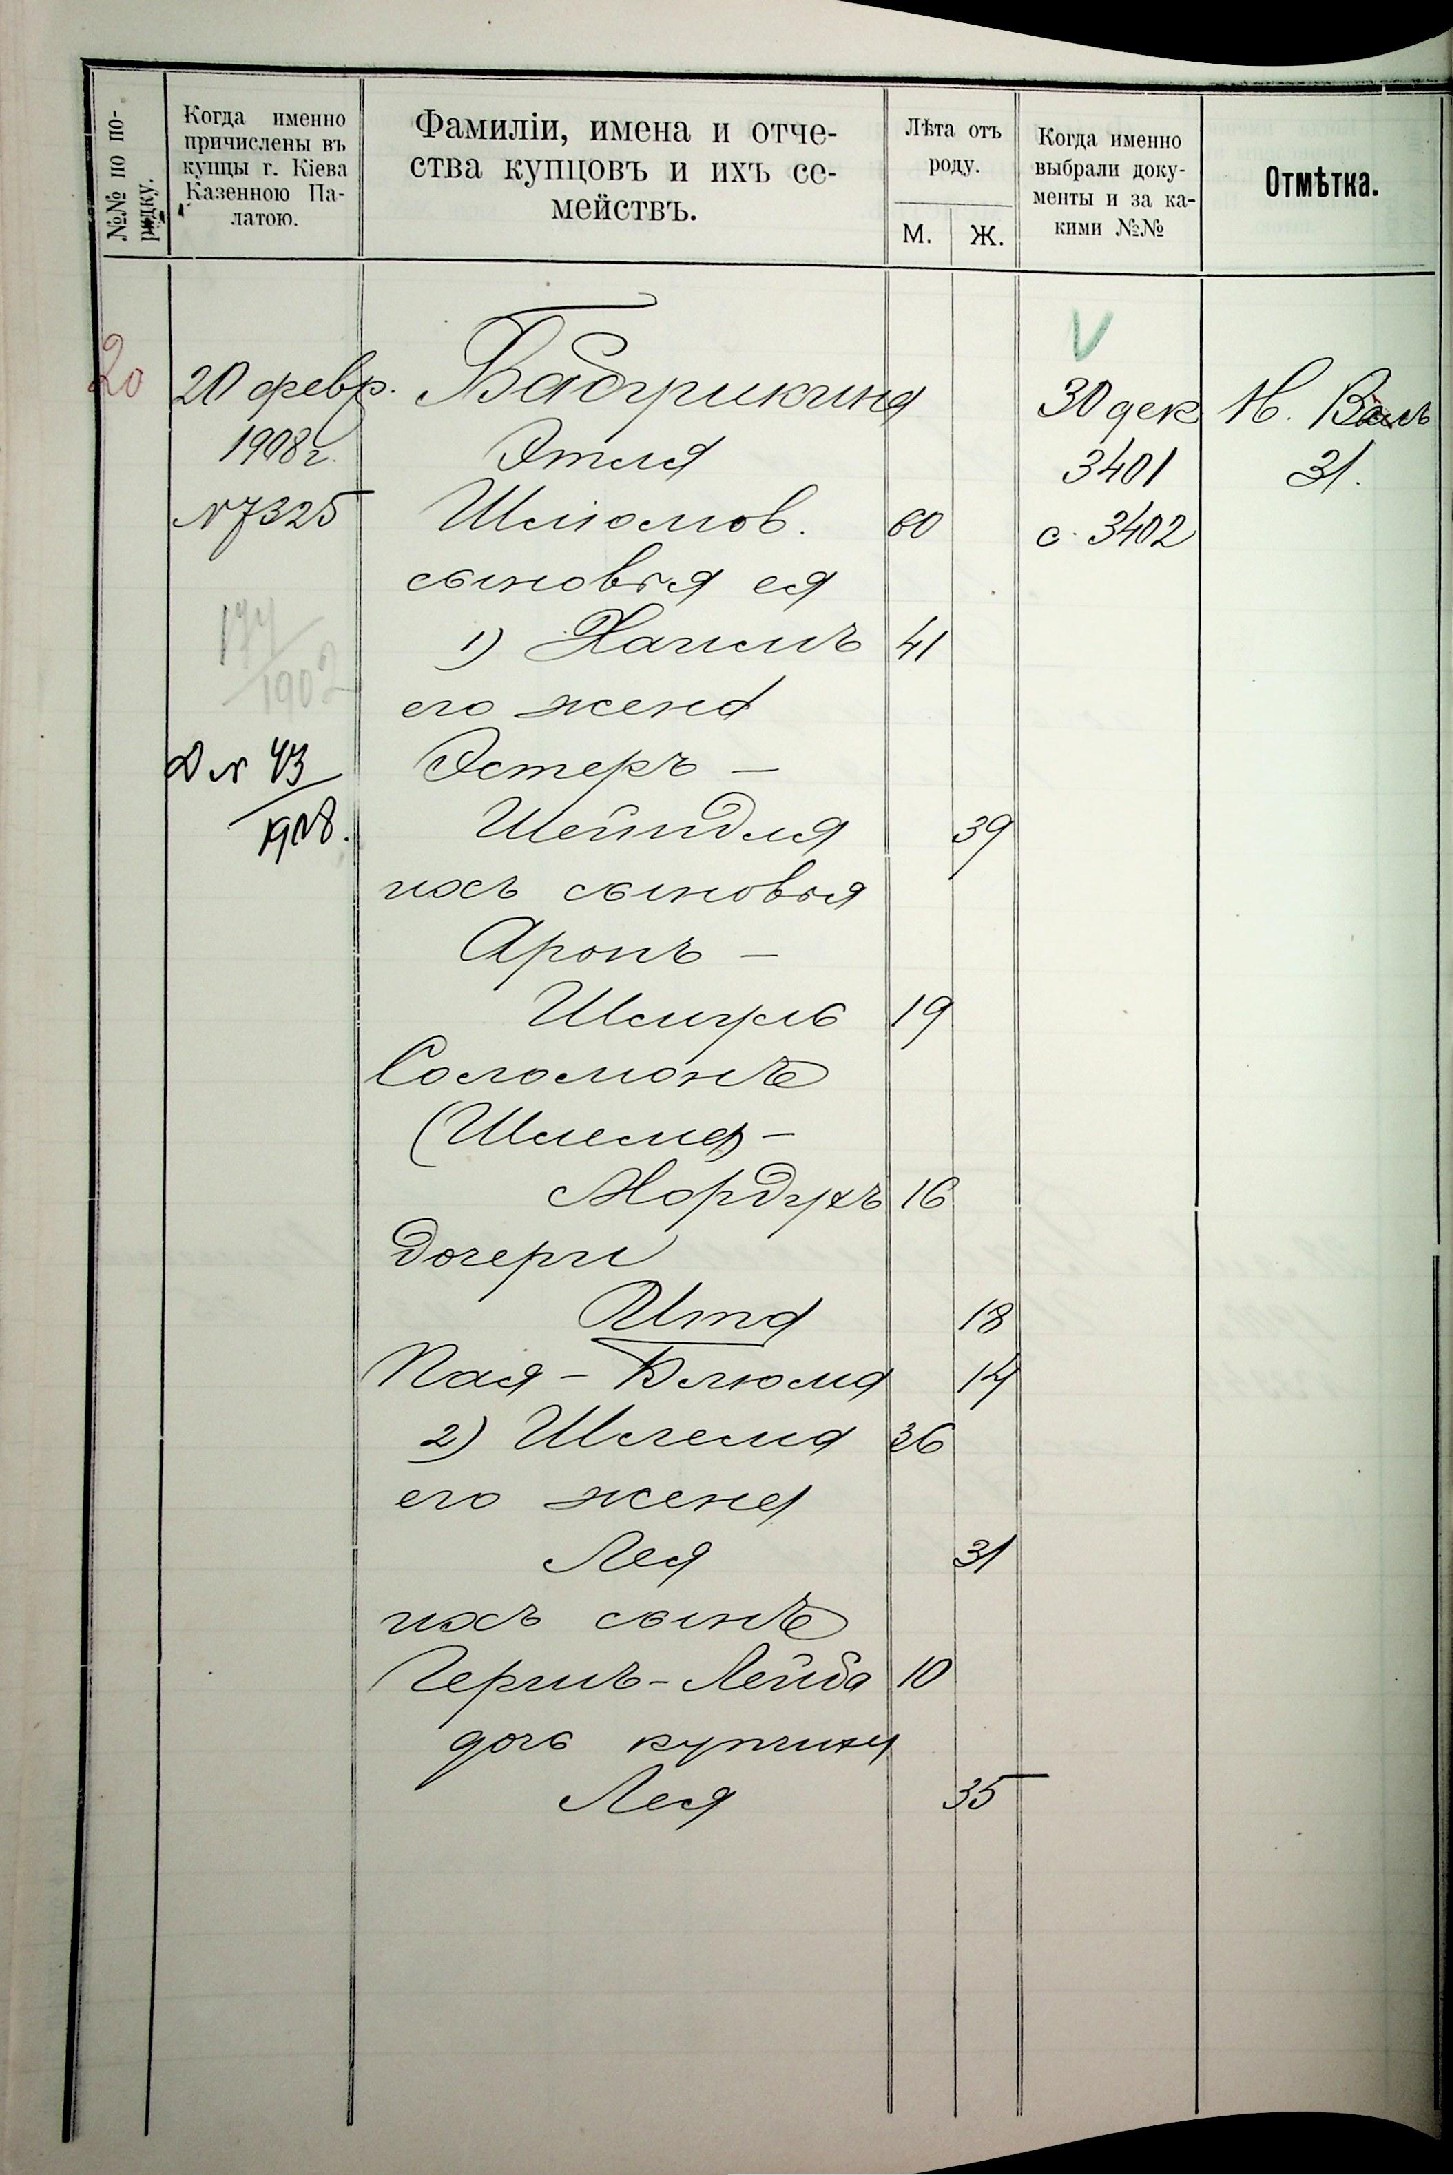 №№ по по-
рядку.
Когда именно
причислены въ
купцы г. Кіева
Казенною Па-
латою.
Фамиліи, имена и отче-
ства купцовъ и ихъ се-
мействъ.
Лѣта отъ
роду.
М. Ж.
Когда именно
выбрали доку-
менты и за ка-
кими №№
Отмѣтка.
20 20 февр. Бабушкина 30 дек Н. Валъ
1908 г. Этля 3401 31.
№ 7325 Шлiомов. 60 с. 3402
сыновья ея
1) Хаимъ 41
177/1902
его жена
Д № 43/1908.
Эстеръ –
Шейндля 39
ихъ сыновья
Аронъ –
Шмуль 19
Соломонъ
(Шлема) –
Мордухъ 16
дочери
Ита 18
Пая – Блюма 14
2) Шлема 36
его жена
Лея 31
ихъ сынъ
Гершъ – Лейба 10
дочь купчихи
Лея 35